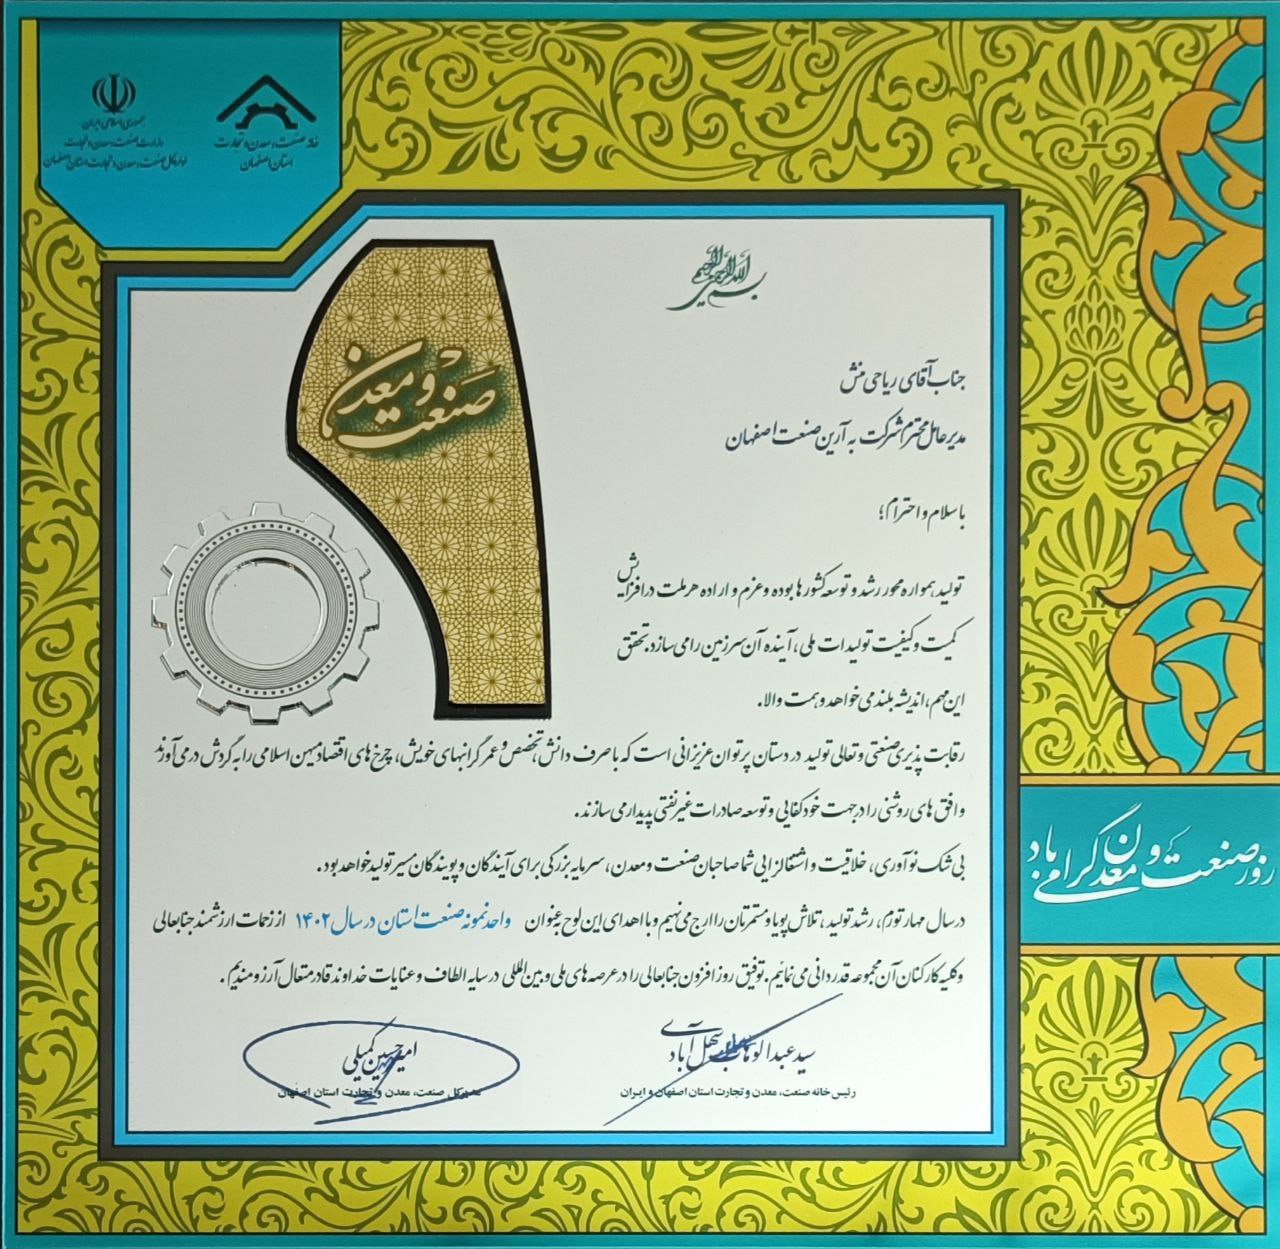 جمهوری اسلامی ایران
وزارت صنعت، معدن و تجارت
اداره کل صنعت، معدن و تجارت استان اصفهان
خانه صنعت، معدن و تجارت
استان اصفهان
بسم الله الرحمن الرحیم
صنعت و معدن
جناب آقای ریاحی منش
مدیر عامل محترم شرکت به آرین صنعت اصفهان
با سلام و احترام؛
تولید، همواره محور رشد و توسعه کشورها بوده و عزم و اراده هر ملت در افزایش
کمیت و کیفیت تولیدات ملی، آینده آن سرزمین را می سازد. تحقق
این مهم، اندیشه بلند می خواهد و همت والا.
رقابت پذیری صنعتی و تعالی تولید در دستان پر توان عزیزانی است که با صرف دانش، تخصص و عمر گرانبهای خویش، چرخ های اقتصاد میهن اسلامی را به گردش در می آورند
و افق های روشنی را در جهت خودکفایی و توسعه صادرات غیر نفتی پدیدار می سازند.
بی شک نوآوری، خلاقیت و اشتغالزایی شما صاحبان صنعت و معدن، سرمایه بزرگی برای آیندگان و پویندگان مسیر تولید خواهد بود.
در سال مهار تورم، رشد تولید، تلاش پویا و مستمرتان را ارج می نهیم و با اهدای این لوح به عنوان واحد نمونه صنعت استان در سال ۱۴۰۲ از زحمات ارزشمند جنابعالی
و کلیه کارکنان آن مجموعه قدردانی می نمائیم. توفیق روز افزون جنابعالی را در عرصه های ملی و بین المللی در سایه الطاف و عنایات خداوند قادر متعال آرزومندیم.
سید عبدالوهاب سهل آبادی
رئیس خانه صنعت، معدن و تجارت استان اصفهان و ایران
امیرحسین کمیلی
مدیرکل صنعت، معدن و تجارت استان اصفهان
روز صنعت و معدن گرامی باد